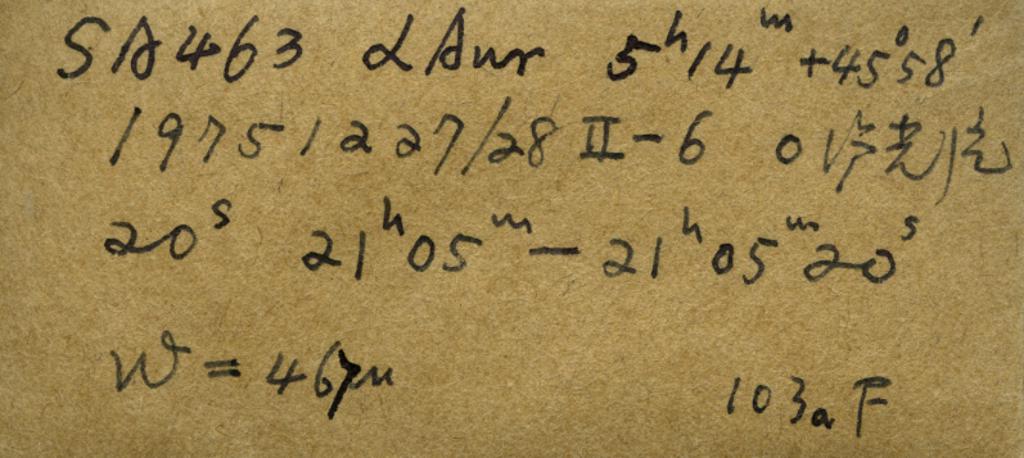 SA463 αAur 5ʰ14ᵐ +45°58′
1975 12 27/28 II-6 0
20ˢ 21ʰ05ᵐ-21ʰ05ᵐ20ˢ
W = 46μ
103aF